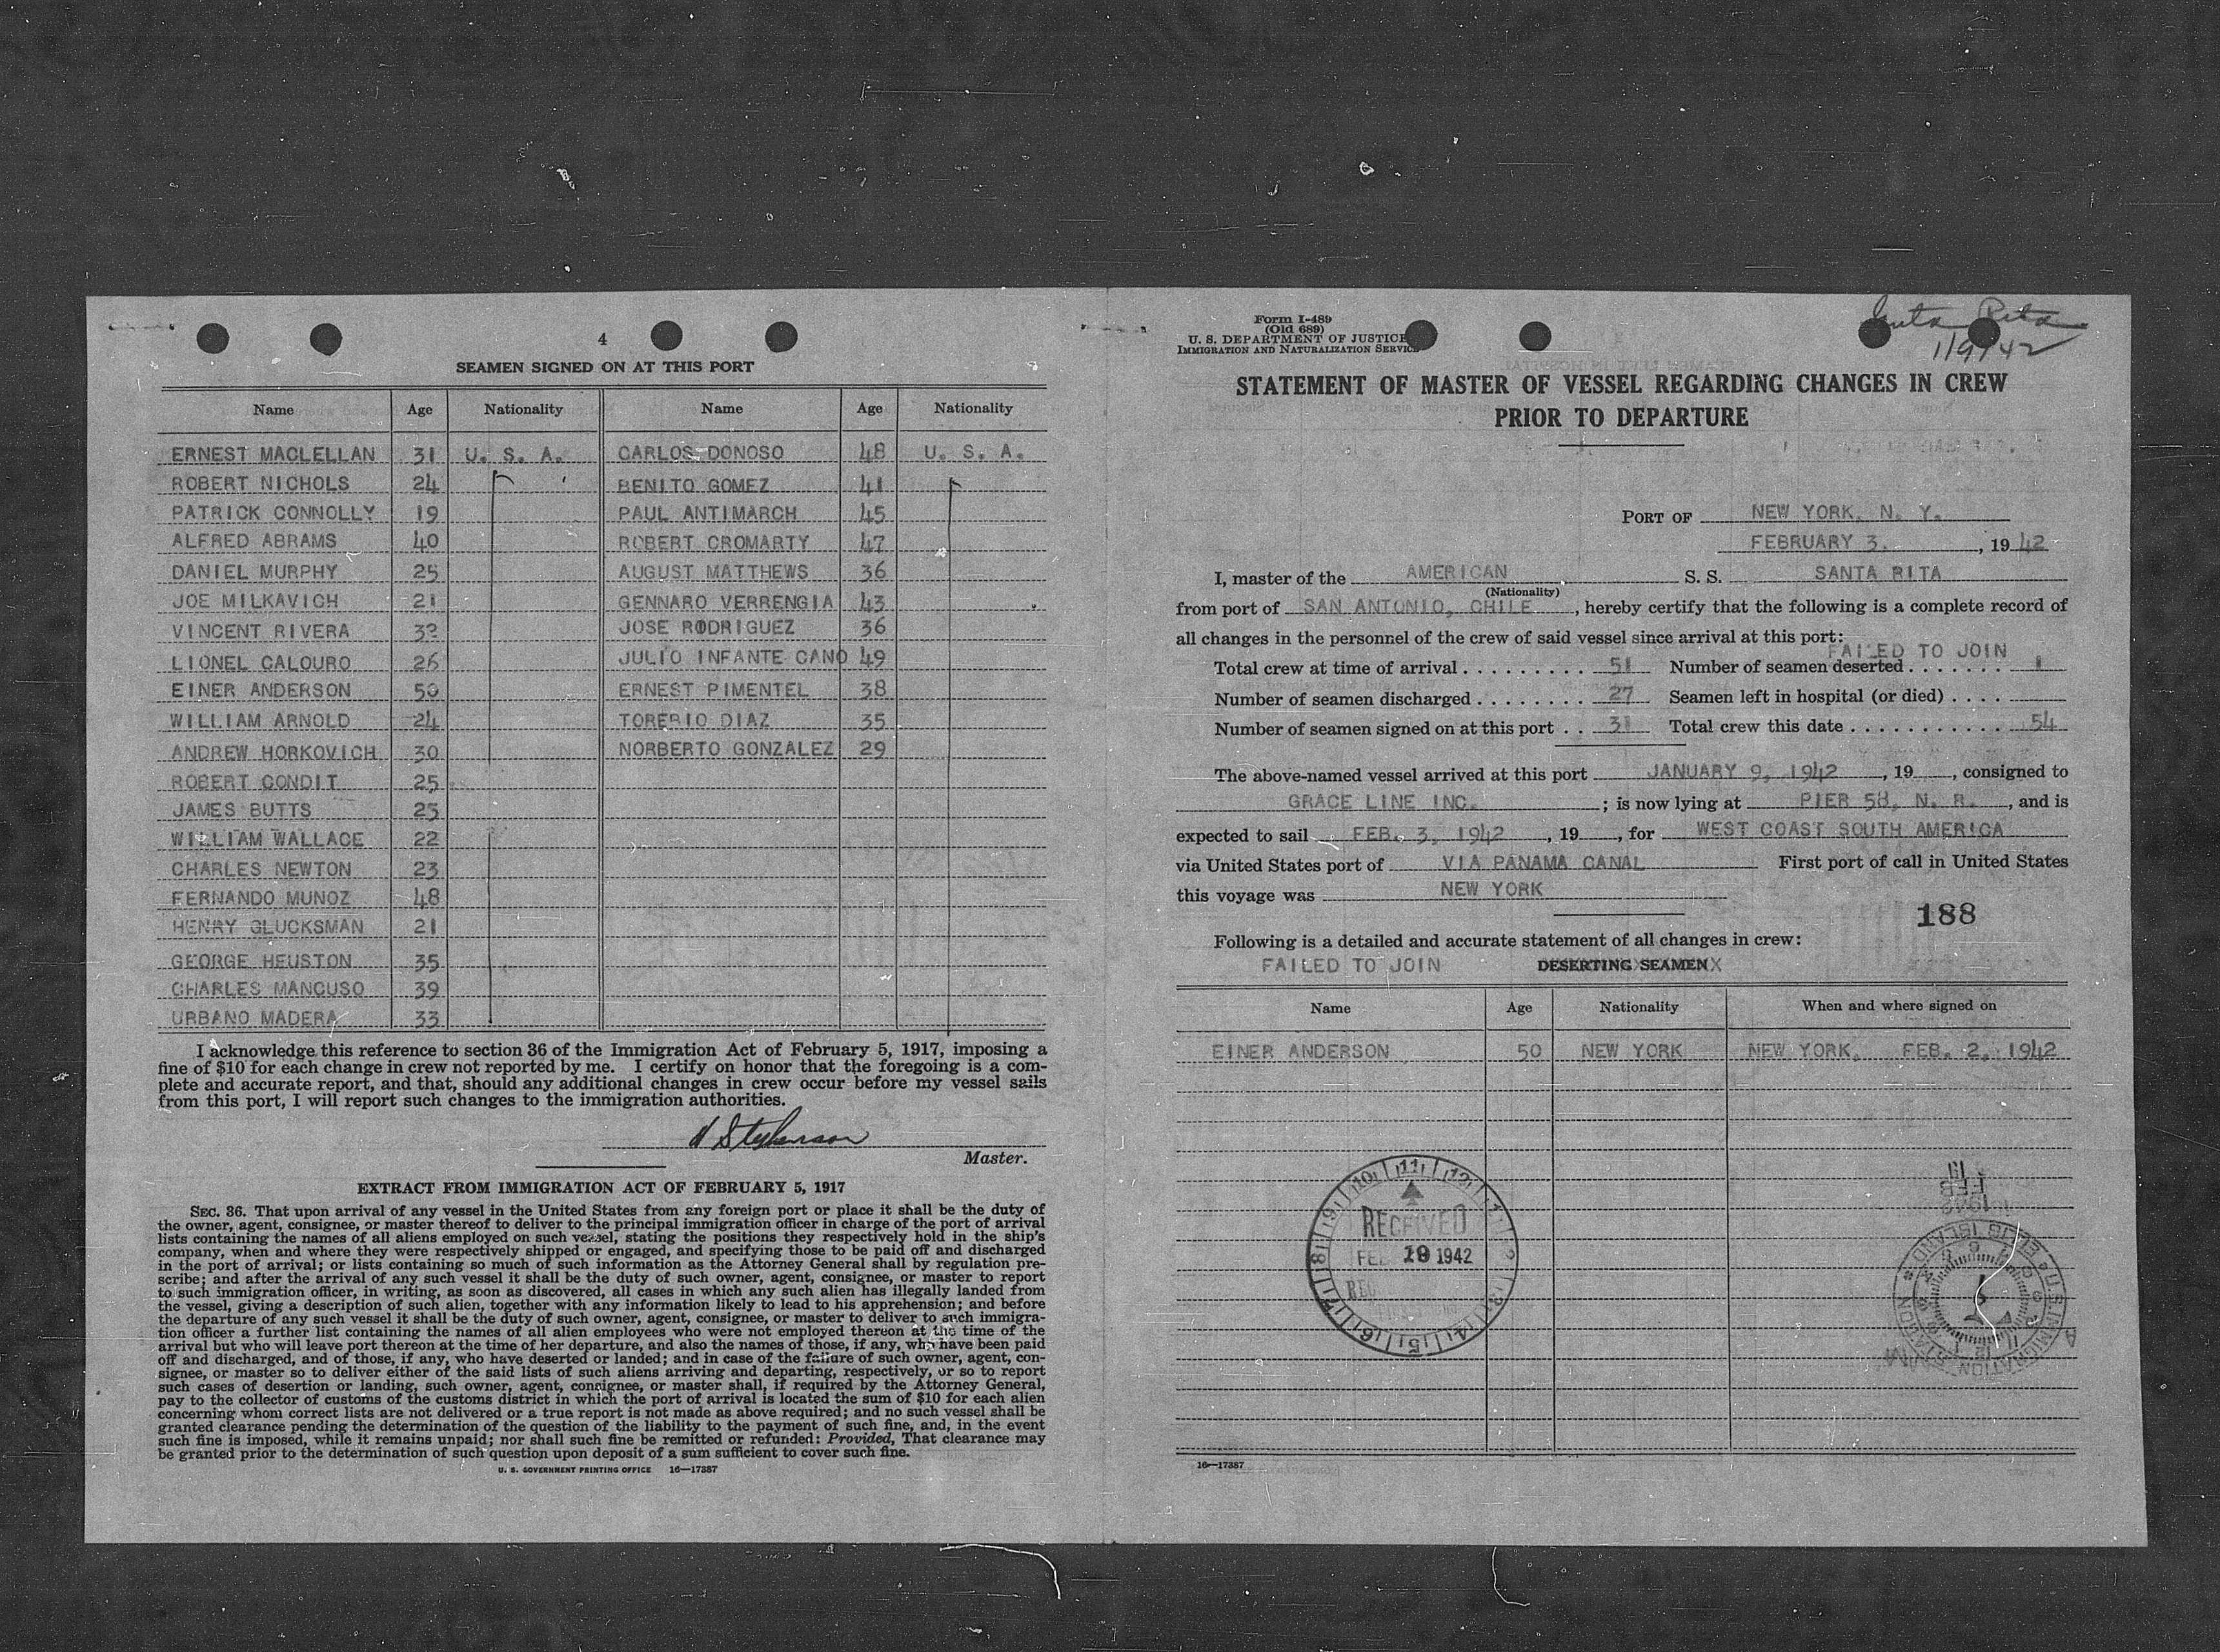 4
SEAMEN SIGNED ON AT THIS PORT
Name Age Nationality Name Age Nationality
ERNEST MACLELLAN 31 U. S. A. CARLOS DONOSO 48 U. S. A.
ROBERT NICHOLS 24 BENITO GOMEZ 41
PATRICK CONNOLLY 19 PAUL ANTIMARCH 45
ALFRED ABRAMS 40 ROBERT CROMARTY 47
DANIEL MURPHY 25 AUGUST MATTHEWS 36
JOE MILKAVICH 21 GENNARO VERRENGIA 43
VINCENT RIVERA JOSE RODRIGUEZ 36
LIONEL CALOURO 26 JULIO INFANTE CANO 49
EINER ANDERSON 50 ERNEST PIMENTEL 38
WILLIAM ARNOLD 24 TORERIO DIAZ 35
ANDREW HORKOVICH 30 NORBERTO GONZALEZ 29
ROBERT CONDIT 25
JAMES BUTTS 23
WILLIAM WALLACE 22
CHARLES NEWTON 23
FERNANDO MUNOZ 48
HENRY GLUCKSMAN 21
GEORGE HEUSTON 35
CHARLES MANCUSO 39
URBANO MADERA 33
I acknowledge this reference to section 36 of the Immigration Act of February 5, 1917, imposing a
fine of $10 for each change in crew not reported by me. I certify on honor that the foregoing is a com-
plete and accurate report, and that, should any additional changes in crew occur before my vessel sails
from this port, I will report such changes to the immigration authorities.
H Stephenson
Master.
EXTRACT FROM IMMIGRATION ACT OF FEBRUARY 5, 1917
SEC. 36. That upon arrival of any vessel in the United States from any foreign port or place it shall be the duty of
the owner, agent, consignee, or master thereof to deliver to the principal immigration officer in charge of the port of arrival
lists containing the names of all aliens employed on such vessel, stating the positions they respectively hold in the ship's
company, when and where they were respectively shipped or engaged, and specifying those to be paid off and discharged
in the port of arrival; or lists containing so much of such information as the Attorney General shall by regulation pre-
scribe; and after the arrival of any such vessel it shall be the duty of such owner, agent, consignee, or master to report
to such immigration officer, in writing, as soon as discovered, all cases in which any such alien has illegally landed from
the vessel, giving a description of such alien, together with any information likely to lead to his apprehension; and before
the departure of any such vessel it shall be the duty of such owner, agent, consignee, or master to deliver to such immigra-
tion officer a further list containing the names of all alien employees who were not employed thereon at the time of the
arrival but who will leave port thereon at the time of her departure, and also the names of those, if any, who have been paid
off and discharged, and of those, if any, who have deserted or landed; and in case of the failure of such owner, agent, con-
signee, or master so to deliver either of the said lists of such aliens arriving and departing, respectively, or so to report
such cases of desertion or landing, such owner, agent, consignee, or master shall, if required by the Attorney General,
pay to the collector of customs of the customs district in which the port of arrival is located the sum of $10 for each alien
concerning whom correct lists are not delivered or a true report is not made as above required; and no such vessel shall be
granted clearance pending the determination of the question of the liability to the payment of such fine, and, in the event
such fine is imposed, while it remains unpaid; nor shall such fine be remitted or refunded: Provided, That clearance may
be granted prior to the determination of such question upon deposit of a sum sufficient to cover such fine.
U. S. GOVERNMENT PRINTING OFFICE 16—17387
Form I-489
(Old 689)
U. S. DEPARTMENT OF JUSTICE
IMMIGRATION AND NATURALIZATION SERVICE
Santa Rita
1/9/42
STATEMENT OF MASTER OF VESSEL REGARDING CHANGES IN CREW
PRIOR TO DEPARTURE
PORT OF NEW YORK, N. Y.
FEBRUARY 3, , 19 42
I, master of the AMERICAN S. S. SANTA RITA
(Nationality)
from port of SAN ANTONIO, CHILE , hereby certify that the following is a complete record of
all changes in the personnel of the crew of said vessel since arrival at this port:
FAILED TO JOIN
Total crew at time of arrival 51 Number of seamen deserted 1
Number of seamen discharged 27 Seamen left in hospital (or died)
Number of seamen signed on at this port 31 Total crew this date 54
The above-named vessel arrived at this port JANUARY 9, 1942 , 19 , consigned to
GRACE LINE INC. ; is now lying at PIER 58, N. R. , and is
expected to sail FEB. 3, 1942 , 19 , for WEST COAST SOUTH AMERICA
via United States port of VIA PANAMA CANAL First port of call in United States
this voyage was NEW YORK
188
Following is a detailed and accurate statement of all changes in crew:
FAILED TO JOIN DESERTING SEAMEN
Name Age Nationality When and where signed on
EINER ANDERSON 50 NEW YORK NEW YORK, FEB. 2, 1942
RECEIVED
FEB 19 1942
16—17387